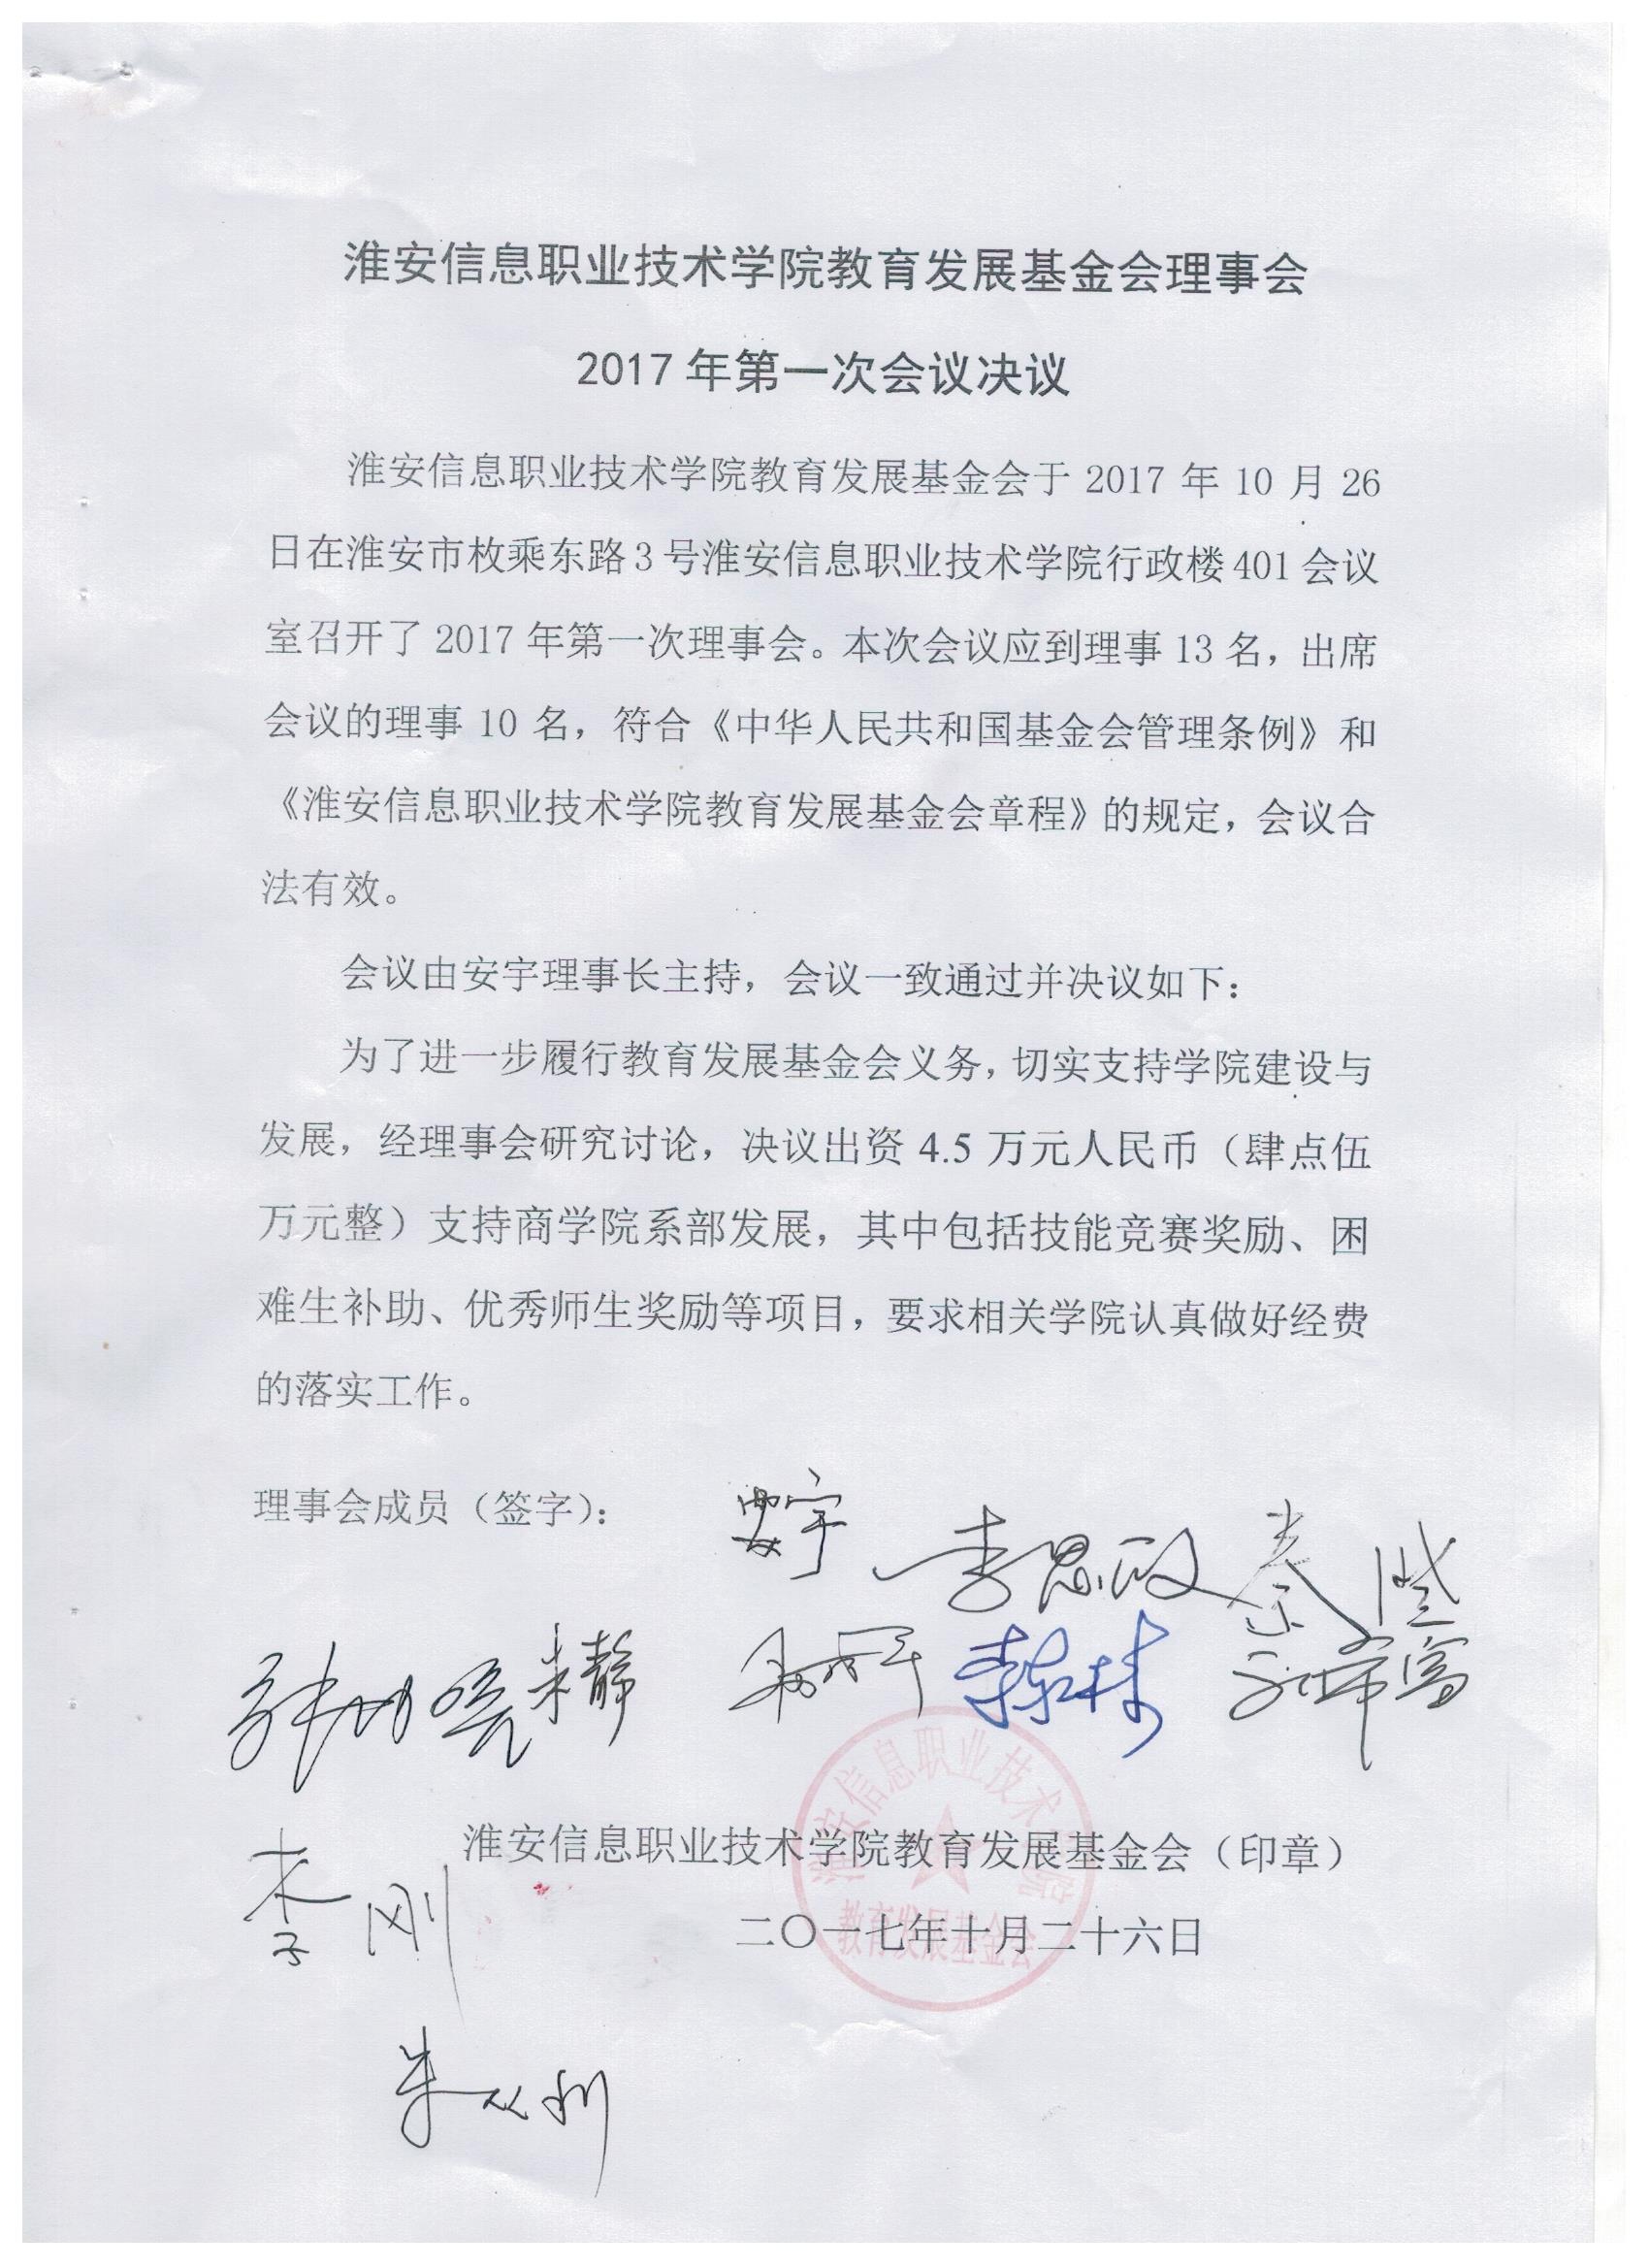 淮安信息职业技术学院教育发展基金会理事会
2017年第一次会议决议
淮安信息职业技术学院教育发展基金会于 2017 年 10 月 26
日在淮安市枚乘东路3号淮安信息职业技术学院行政楼401会议
室召开了 2017 年第一次理事会。本次会议应到理事 13 名，出席
会议的理事 10 名，符合《中华人民共和国基金会管理条例》和
《淮安信息职业技术学院教育发展基金会章程》的规定，会议合
法有效。
会议由安宇理事长主持，会议一致通过并决议如下：
为了进一步履行教育发展基金会义务，切实支持学院建设与
发展，经理事会研究讨论，决议出资 4.5 万元人民币（肆点伍
万元整）支持商学院系部发展，其中包括技能竞赛奖励、困
难生补助、优秀师生奖励等项目，要求相关学院认真做好经费
的落实工作。
理事会成员（签字）：
安宇
李思政
朱静
李刚
淮安信息职业技术学院教育发展基金会（印章）
二〇一七年十月二十六日
淮安信息职业技术学院
教育发展基金会